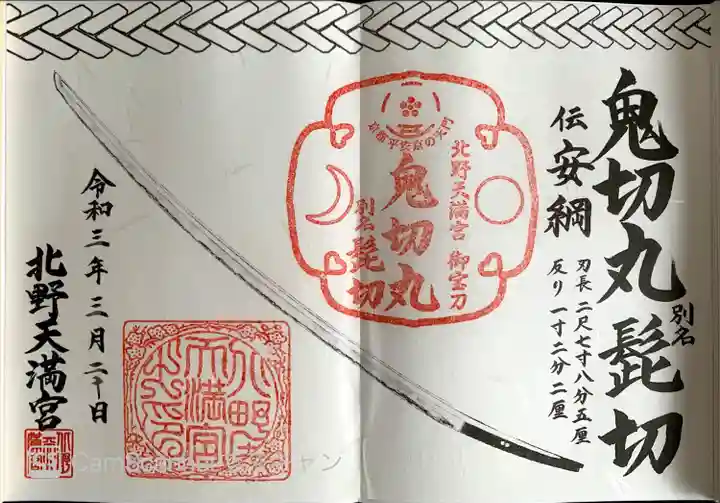 鬼切丸
別名
髭切
伝 安綱
刃長 二尺七寸八分五厘
反り 一寸二分二厘
京都 平安京の天門
北野天満宮 御宝刀
鬼切丸
別名
髭切
令和三年三月二十日
北野天満宮
北野天満宮之印